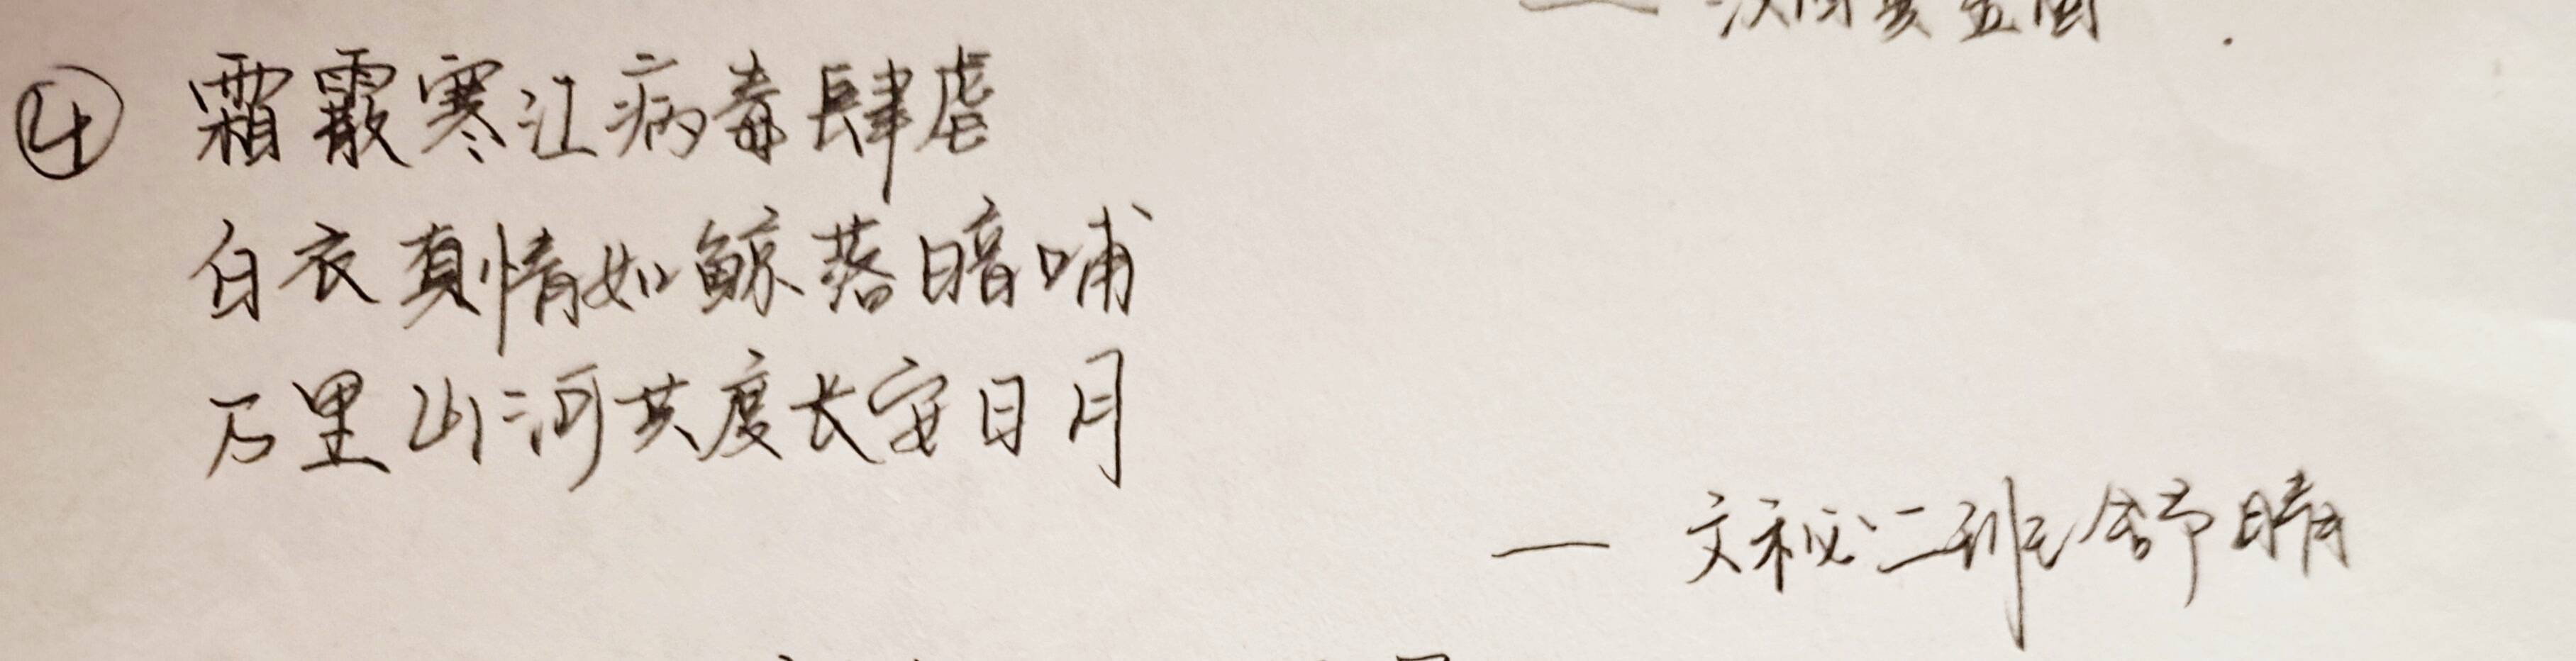 ④ 霜霰寒江病毒肆虐
白衣真情如鲸落暗哺
万里山河共度长安日月
— 文秘二班舒晴